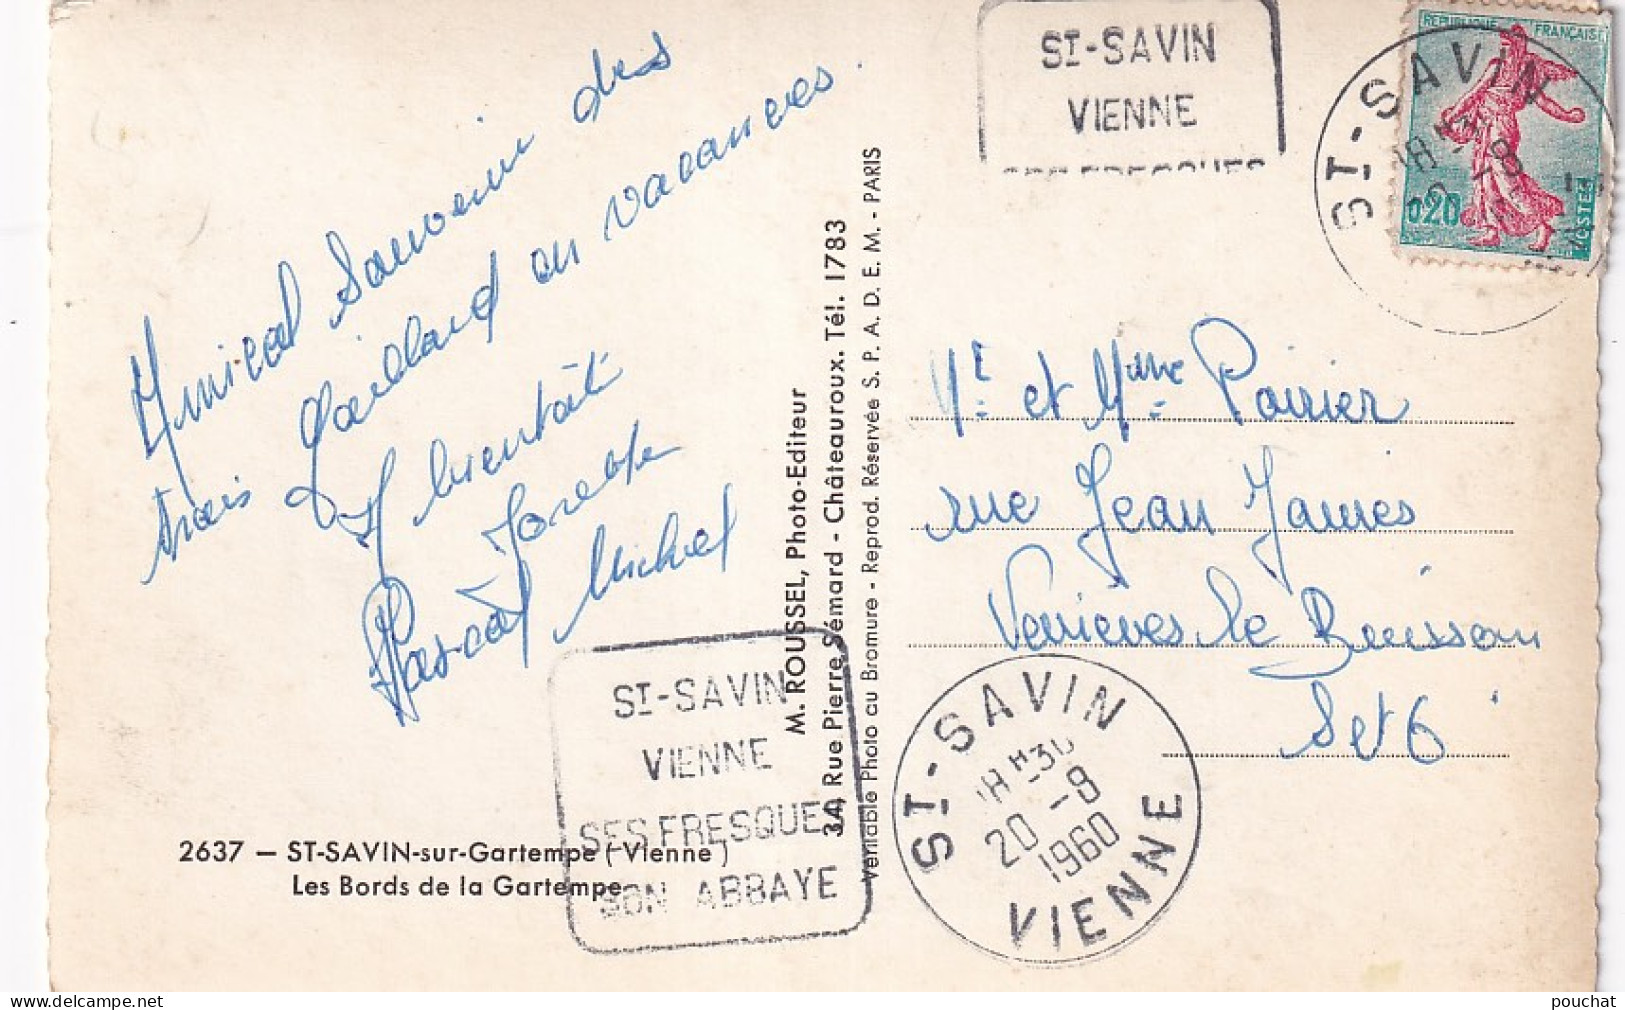 Amical Souvenir des
trois Gaillard en vacances.
A bientôt
Josette
Pascal Michel
2637 — ST-SAVIN-sur-Gartempe (Vienne)
Les Bords de la Gartempe
M. ROUSSEL, Photo-Editeur
34, Rue Pierre Sémard - Châteauroux. Tél. 1783
Véritable Photo au Bromure - Reprod. Réservée S. P. A. D. E. M. - PARIS
ST-SAVIN
VIENNE
SES FRESQUES
SON ABBAYE
ST-SAVIN
VIENNE
SES FRESQUES
REPUBLIQUE FRANÇAISE
0,20
POSTES
ST-SAVIN
18H30
20-8
Mr et Mme Poirier
rue Jean James
Verrières le Buisson
Set 6
ST-SAVIN
18H30
20-8
1960
VIENNE
delcampe.net
pouchat